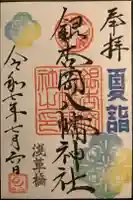 奉拝
夏詣
銀杏岡八幡神社
浅草橋
令和 年七月六日